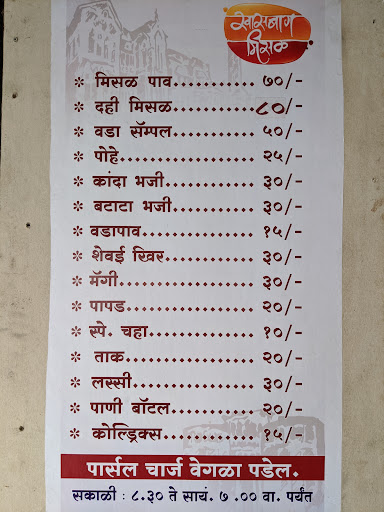 खासबाग
मिसळ
* मिसळ पाव..............७०/-
* दही मिसळ..............८०/-
* वडा सॅम्पल..............५०/-
* पोहे......................२५/-
* कांदा भजी..............३०/-
* बटाटा भजी.............३०/-
* वडापाव.................१५/-
* शेवई खिर..............३०/-
* मॅगी.....................३०/-
* पापड...................२०/-
* स्पे. चहा................१०/-
* ताक.....................२०/-
* लस्सी...................३०/-
* पाणी बॉटल.............२०/-
* कोल्ड्रिक्स..............१५/-
पार्सल चार्ज वेगळा पडेल.
सकाळी : ८.३० ते सायं. ७.०० वा. पर्यंत